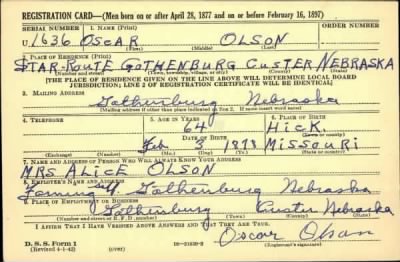 REGISTRATION CARD—(Men born on or after April 28, 1877 and on or before February 16, 1897)
SERIAL NUMBER 1. NAME (Print) ORDER NUMBER
U1636 OSCAR OLSON
(First) (Middle) (Last)
2. PLACE OF RESIDENCE (Print)
STAR-ROUTE GOTHENBURG CUSTER NEBRASKA
(Number and street) (Town, township, village, or city) (County) (State)
[THE PLACE OF RESIDENCE GIVEN ON THE LINE ABOVE WILL DETERMINE LOCAL BOARD
JURISDICTION; LINE 2 OF REGISTRATION CERTIFICATE WILL BE IDENTICAL]
3. MAILING ADDRESS
Gothenburg Nebraska
(Mailing address if other than place indicated on line 2. If same insert word same)
4. TELEPHONE 5. AGE IN YEARS 6. PLACE OF BIRTH
64 HICK.
DATE OF BIRTH (Town or county)
Feb 3 1878 MISSOURI
(Exchange) (Number) (Mo.) (Day) (Yr.) (State or country)
7. NAME AND ADDRESS OF PERSON WHO WILL ALWAYS KNOW YOUR ADDRESS
MRS ALICE OLSON
8. EMPLOYER'S NAME AND ADDRESS
Gothenburg Nebraska
9. PLACE OF EMPLOYMENT OR BUSINESS
Gothenburg Custer Nebraska
(Number and street or R. F. D. number) (Town) (County) (State)
I AFFIRM THAT I HAVE VERIFIED ABOVE ANSWERS AND THAT THEY ARE TRUE.
Oscar Olson
D. S. S. Form 1
(Revised 4-1-42) (over) (Registrant's signature)